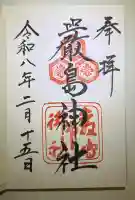 奉拝
厳島神社
令和八年二月十五日